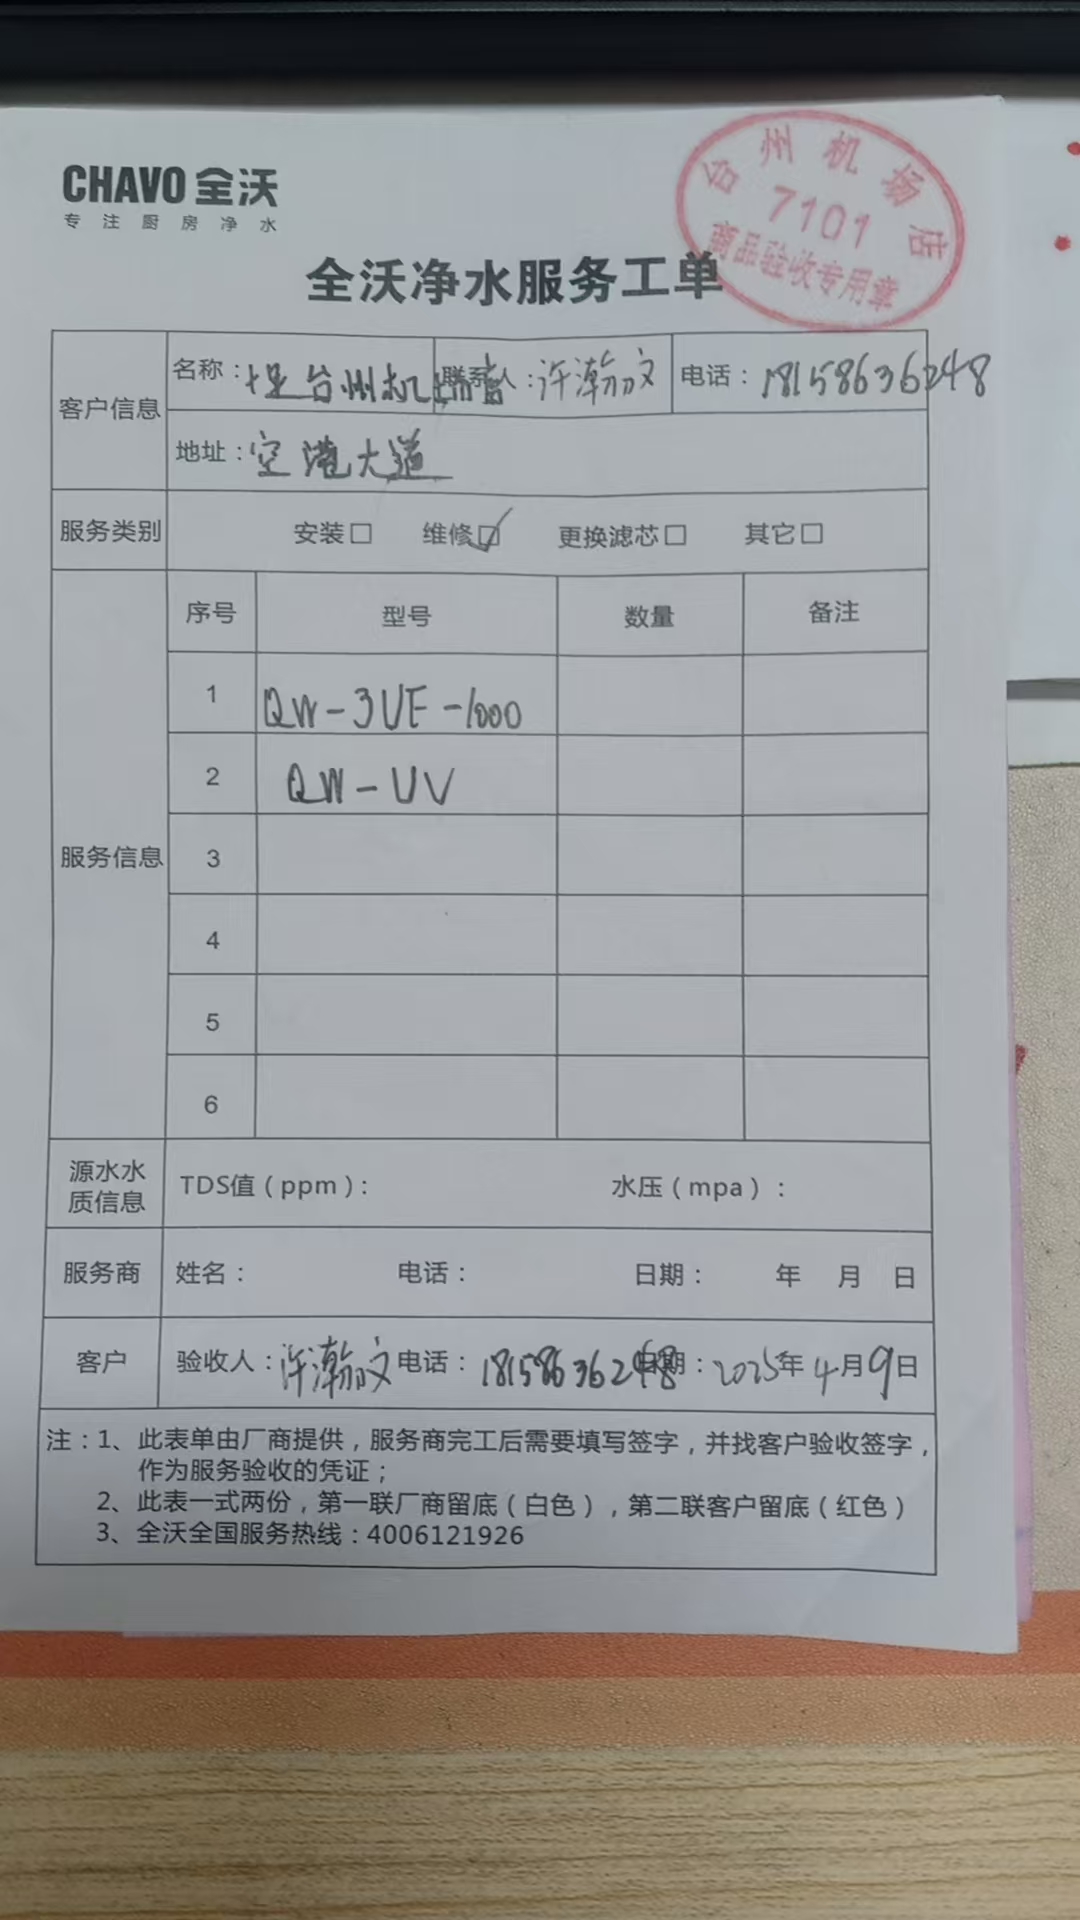 CHAVO 全沃
专注厨房净水
台州机场店
7101
商品验收专用章
全沃净水服务工单
客户信息
名称： 台州机 联系人：许瀚文 电话：18158636248
地址：空港大道
服务类别 安装□ 维修☑ 更换滤芯□ 其它□
服务信息
序号 型号 数量 备注
1 QW-3UF-1000
2 QW-UV
3
4
5
6
源水水质信息 TDS值（ppm）： 水压（mpa）：
服务商 姓名： 电话： 日期： 年 月 日
客户 验收人：许瀚文 电话：18158636248 日期：2025年4月9日
注：1、此表单由厂商提供，服务商完工后需要填写签字，并找客户验收签字，
作为服务验收的凭证；
2、此表一式两份，第一联厂商留底（白色），第二联客户留底（红色）
3、全沃全国服务热线：4006121926